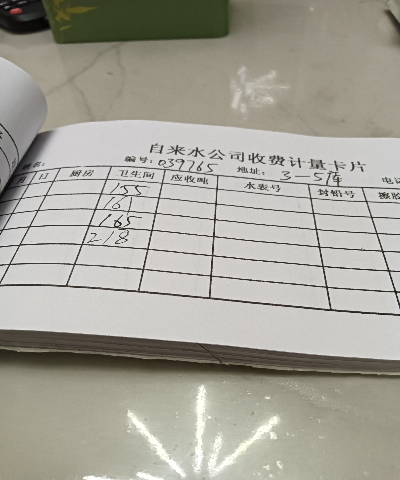 自来水公司收费计量卡片
名: 编号: 039765 地址: 3-5库 电话
月 日 厨房 卫生间 应收吨 水表号 封铅号
155
161
165
218